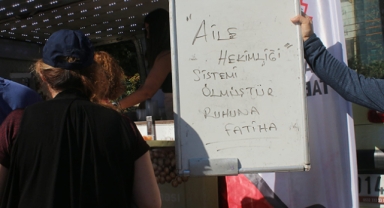 "AİLE
HEKİMLİĞİ"
SİSTEMİ
ÖLMÜŞTÜR
RUHUNA
FATİHA